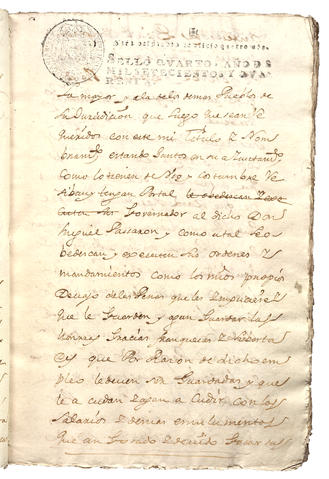 SELLO QVARTO, AÑO DE
MIL SETECIENTOS Y QVA
la mayor y a la de los demas Pueblos de
la Jurisdicion que luego que sean re
queridos con este mi titulo y Nom
bramto. estando Juntos en su Ayuntamto.
como lo tienen de Uso y costumbre Re
sivan y tengan Por tal
Governador al dicho Don
Miguel Passaron y como a tal le o
bedescan y executen sus ordenes y
mandamientos como los mios propios
Devajo de las Penas que les Impusiere y
que le Guarden y agan Guardar las
honrras Gracias franquezas y liverta
des que Por Razon de dicho em
pleo le deven ser Guardadas y que
le acudan y agan acudir con los
Salarios y demas emulumentos
que an Gosado y devido Gosar los